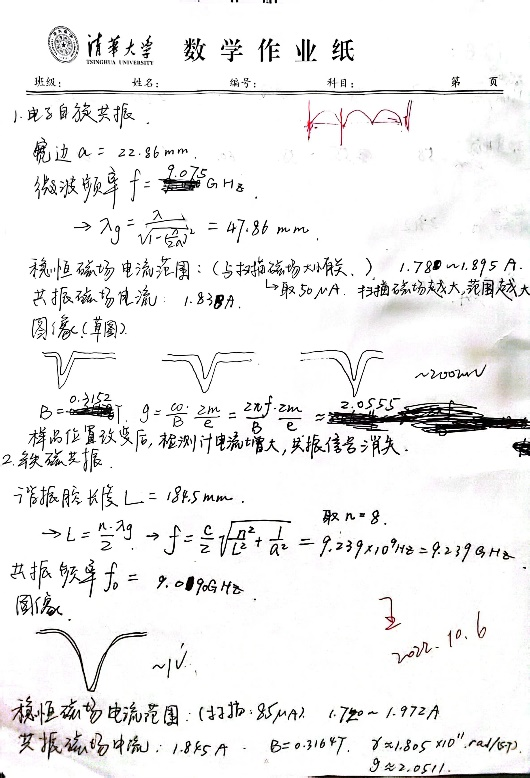 清华大学 数学作业纸
TSINGHUA UNIVERSITY
班级: 姓名: 编号: 科目: 第 页
1. 电子自旋共振.
宽边 a = 22.86 mm.
微波频率 f = 9.075 GHz
→ λg = λ/√(1-(λ/2a)²) = 47.86 mm.
稳恒磁场电流范围: (与扫描磁场大小有关.) 1.780~1.895 A.
↳取50μA. 扫描磁场越大,范围越大
共振磁场电流: 1.838A.
图像(草图)
~200mV
B = 0.3152 T. g = ω/B · 2m/e = 2πf·2m/B e ≈ 2.0555
样品位置改变后, 检测计电流增大, 共振信号消失.
2. 铁磁共振.
谐振腔长度 L = 184.5 mm.
取 n = 8.
→ L = n·λg/2 → f = c/2 √(n²/L² + 1/a²) = 9.239×10⁹Hz = 9.239 GHz
共振频率 f₀ = 9.0190GHz
图像.
~1V.
2022.10.6
稳恒磁场电流范围: (扫描: 85μA). 1.720 ~ 1.972A
共振磁场电流: 1.845A. B = 0.3164T. γ ≈ 1.805×10¹¹ rad/(s·T).
g ≈ 2.0511.